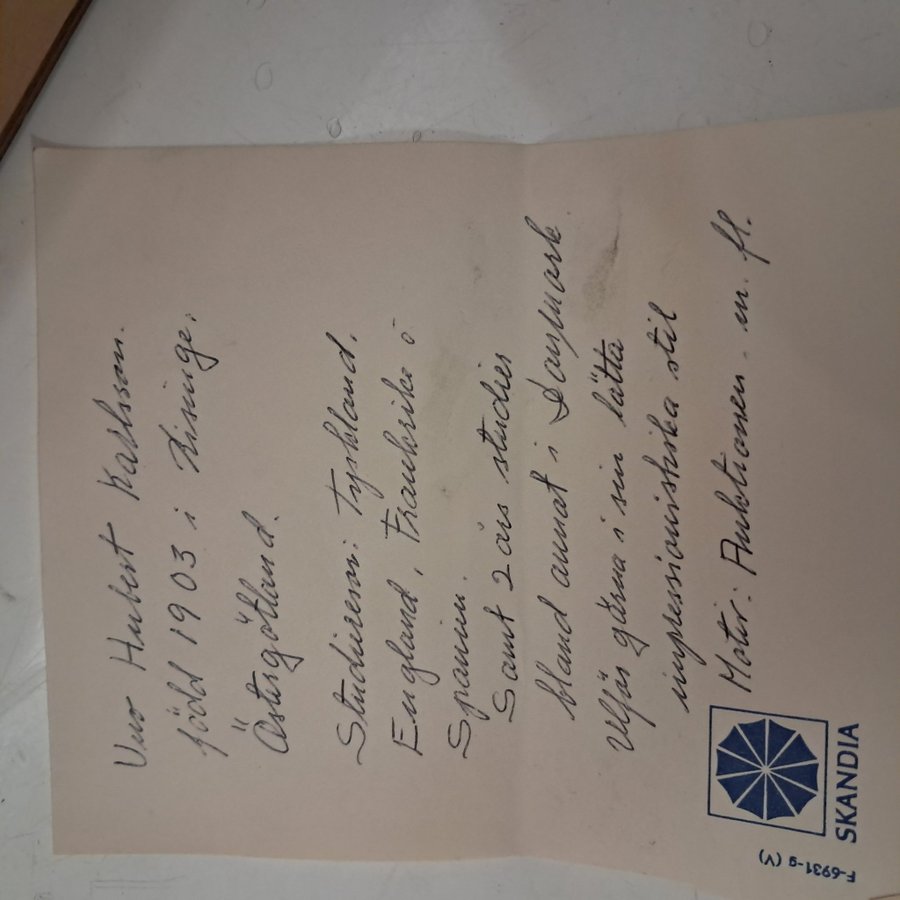 Uno Hubert Karlsson.
född 1903 i Risinge.
Östergötland.
Studieresor: Tyskland.
England, Frankrike o
Spanien.
Samt 2 års studier
bland annat i Danmark.
Utför gärna i sin lätta
impressionistiska stil
Motiv: Auktionen. m. fl.
SKANDIA
F-6931-g (V)